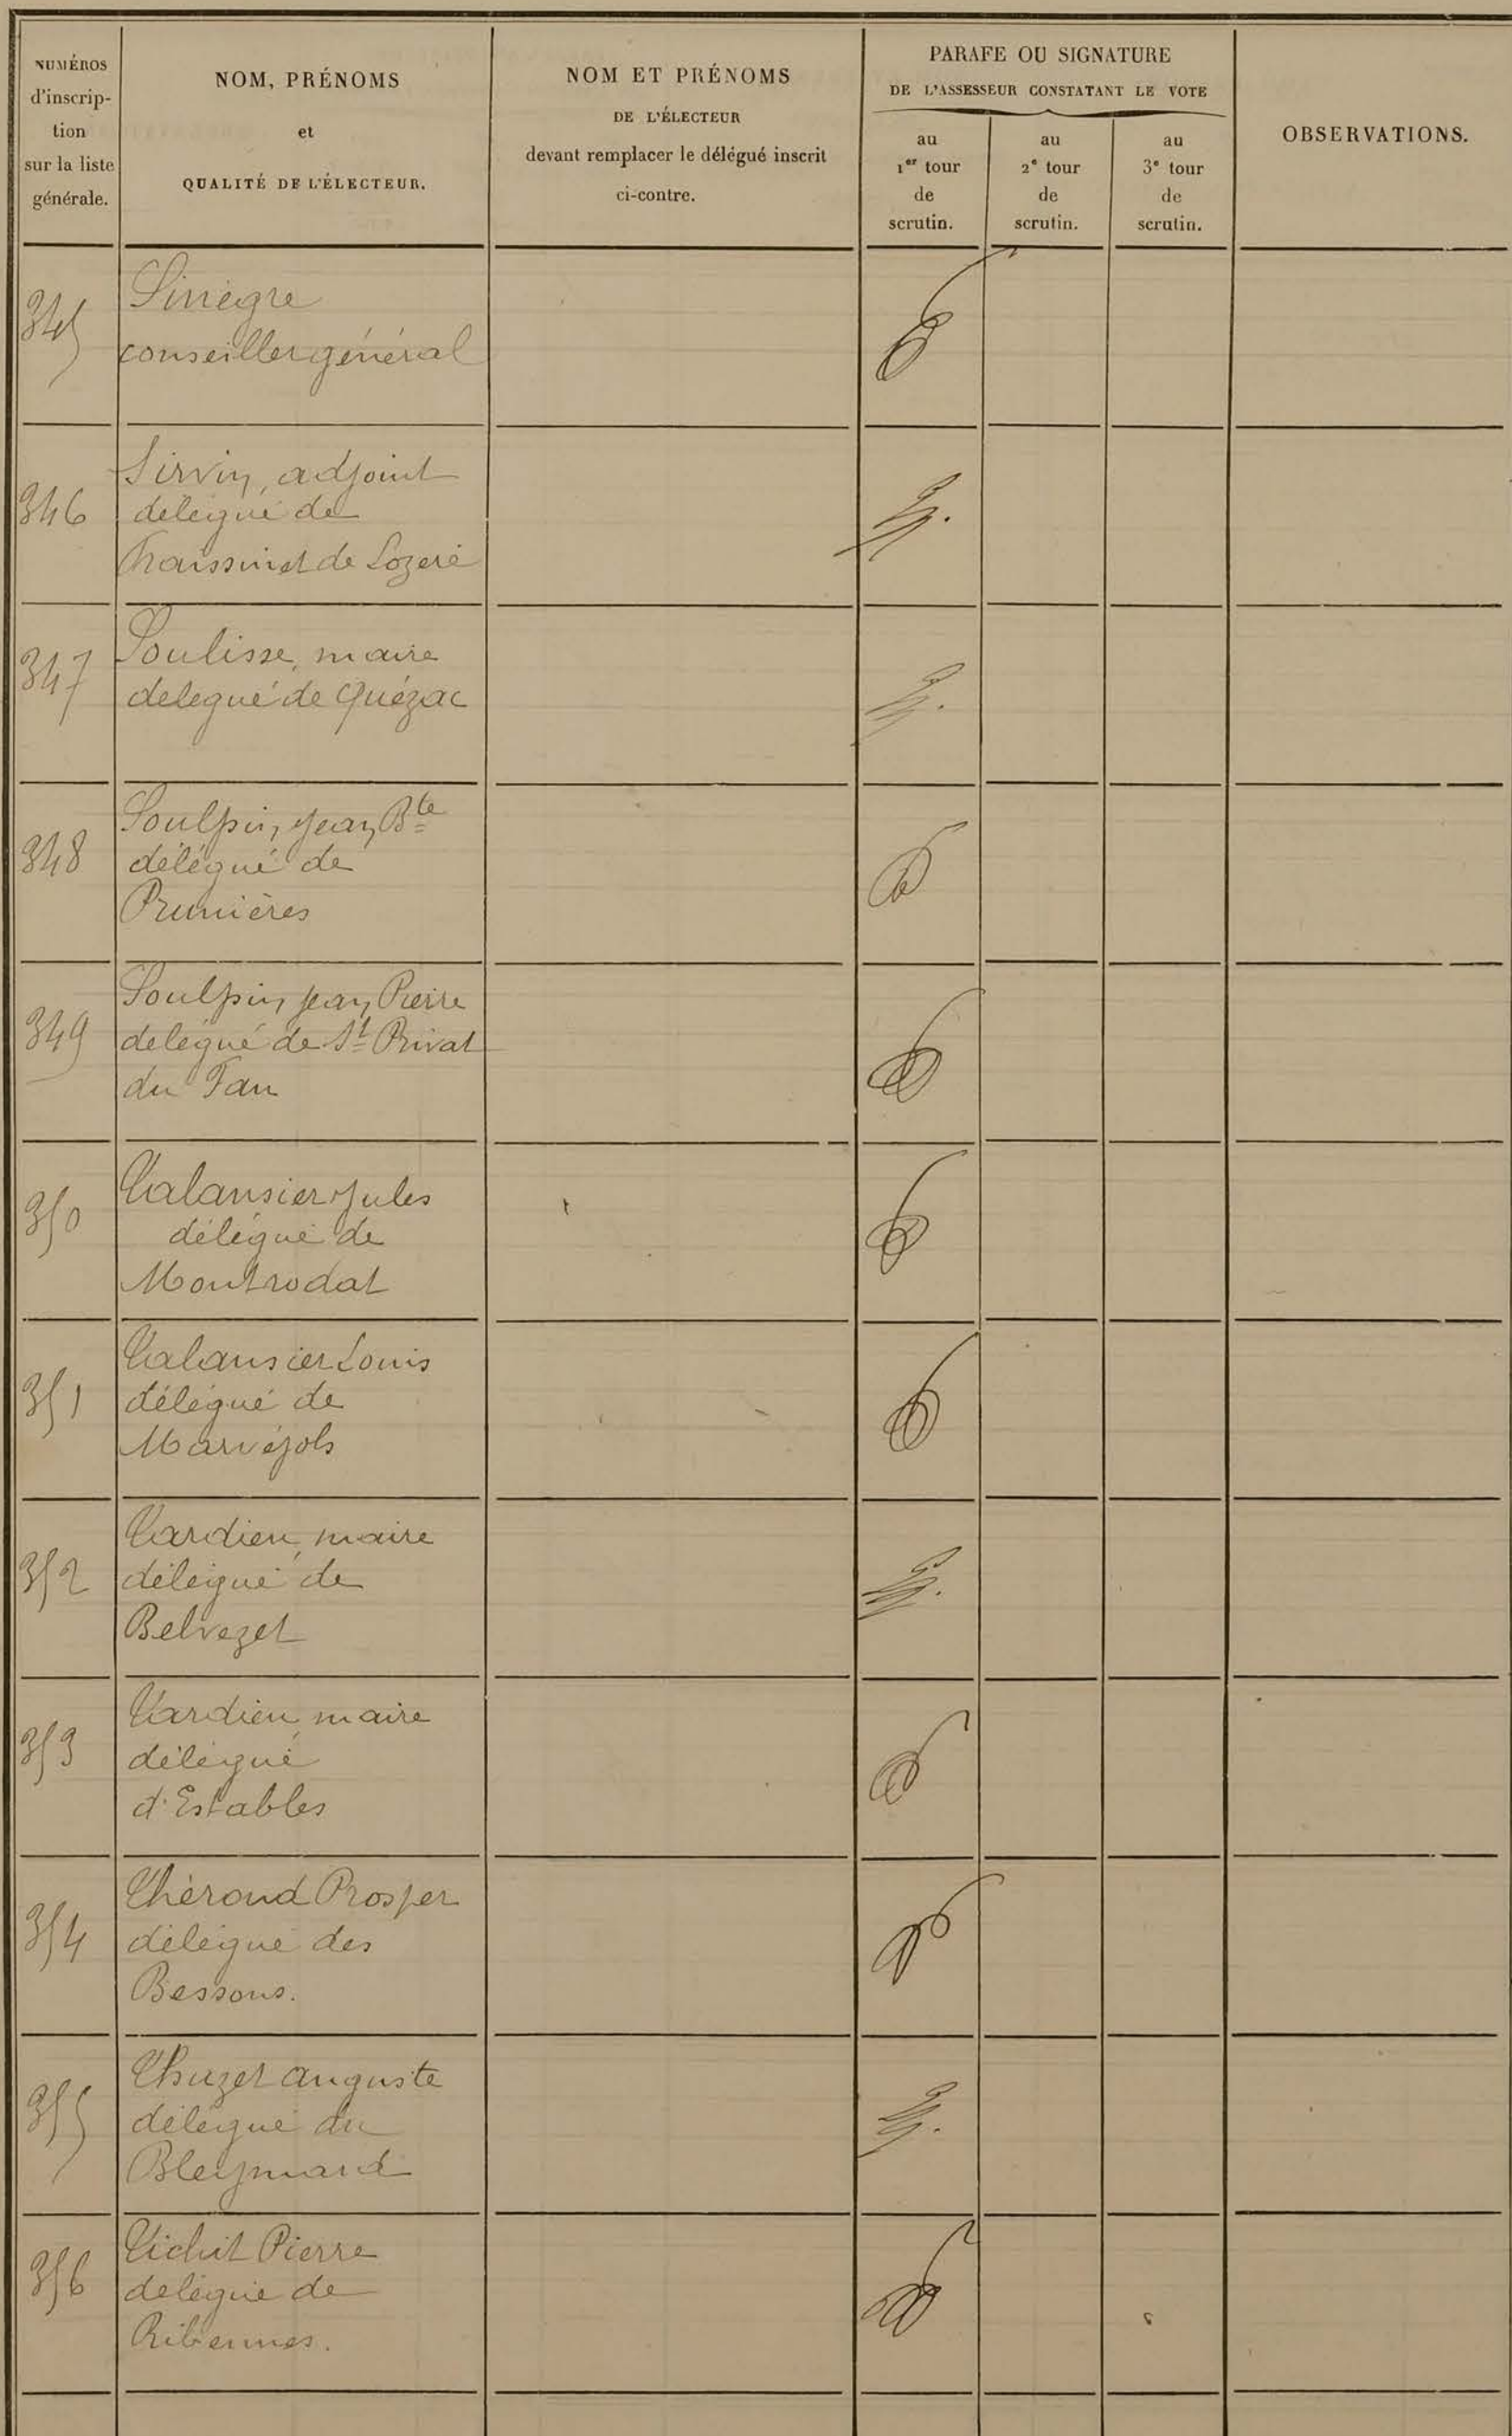 NUMÉROS
d'inscrip-
tion
sur la liste
générale.
NOM, PRÉNOMS
et
QUALITÉ DE L'ÉLECTEUR.
NOM ET PRÉNOMS
DE L'ÉLECTEUR
devant remplacer le délégué inscrit
ci-contre.
PARAFE OU SIGNATURE
DE L'ASSESSEUR CONSTATANT LE VOTE
au
1er tour
de
scrutin.
au
2e tour
de
scrutin.
au
3e tour
de
scrutin.
OBSERVATIONS.
345
Sinègre
conseiller général
346
Sirvin, adjoint
délégué de
Fraissinet de Lozère
347
Soulisse, maire
délegué de Quézac
348
Soulpin, Jean Bte
délégué de
Prunières
349
Soulpin Jean Pierre
delégué de St Privat
du Fau
350
Talansier Jules
délégué de
Montrodat
351
Talansier Louis
délégué de
Marvéjols
352
Tardieu, maire
délégué de
Belvezet
353
Tardieu, maire
délégué
d'Estables
354
Thérond Prosper
délégué des
Bessons.
355
Thuzet auguste
délégué du
Bleymard
356
Tichit Pierre
delégué de
Ribennes.